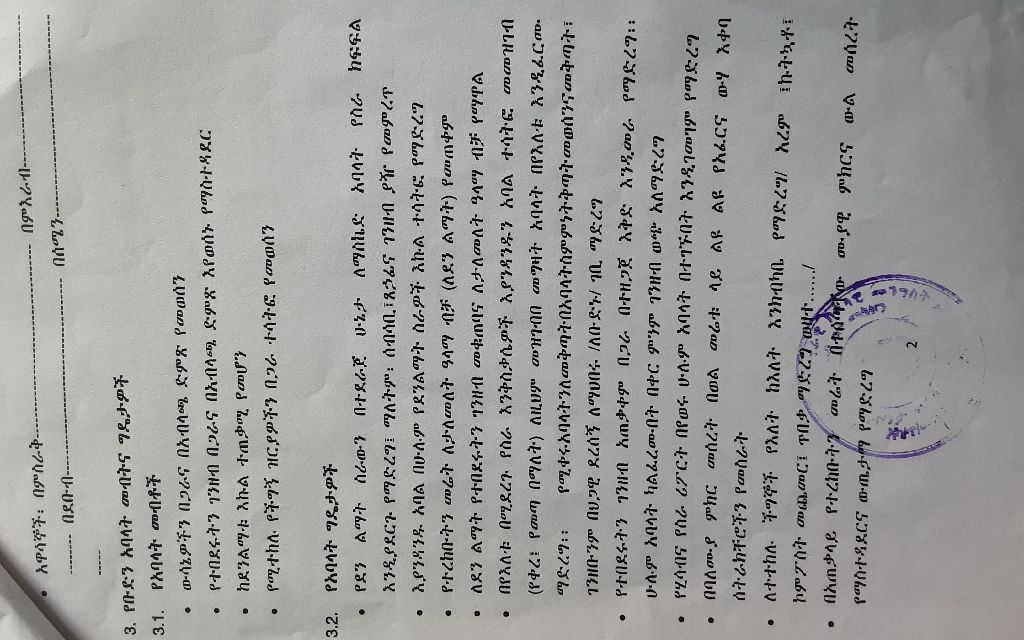 • አዋሳኞች፡ በምስራቅ-------------------------- በምእራብ--------------------------
------- በደቡብ-------------------------- በሰሜን--------------------------
----
3. የቡድን አባላት መብትና ግዴታዎች
3.1. የአባላት መብቶች
• ውሳኔዎችን በጋራና በአብላጫ ድምጽ የመወሰን
• የተበደሩትን ገንዘብ በጋራና በአብላጫ ድምጽ እየወሰኑ የማስተዳደር
• ከደንልማቱ እኩል ተጠቃሚ የመሆን
• የሚተከሉ የችግኝ ዝርያዎችን በጋራ ተሳትፎ የመወሰን
3.2. የአባላት ግዴታዎች
• የደን ልማት ስራውን በተደራጀ ሁኔታ ለማስኬድ አባላት የስራ ክፍፍል
እንዲያደርጉ የማድረግ፤ ማለትም፡ ሰብሳቢ፤ጸኃፊና ገንዘብ ያዥ የመምረጥ
• እያንዳንዱ አባል በሁሉም የደንልማት ስራዎች እኩል ተሳትፎ የማድረግ
• የተረከቡትን መሬት ለታለመለት ዓላማ ብቻ (ለደን ልማት) የመጠቀም
• ለደን ልማት የተበደሩትን ገንዘብ መቆጠብና ለታለመለት ዓላማ ብቻ የማዋል
• በየእለቱ በሚደረጉ የስራ እንቅስቃሴዎች እያንዳንዱን አባል ተሳትፎ መመዝገብ
(የቀረ፤ የመጣ በማለት) ለዚህም መዝገብ በመግዛት አባላት በየእለቱ እንዲፈርሙ
ማድረግ፡፡ የሚቀሩአባላትንለመቅጣትበአባላትስምምነትቅጣትመወሰንናመቅጣት፤
ገንዘቡንም በህጋዊ ደረሰኝ ለማህበሩ /ለቡድኑ/ ገቢ ማድረግ
• የተበደሩትን ገንዘብ አጠቃቀም በጋራ በተዘጋጀ እቅድ እንዲመራ የማድረግ፡፡
ሁሉም አባላት ካልፈረሙበት በቀር ምንም ገንዘብ ወጭ አለማድረግ
• የሂሳብና የስራ ሪፖርት በየወሩ ሁሉም አባላት በተገኙበት እንዲገመገም የማድረግ
• በባለሙያ ምክር መሰረት በወል መሬቱ ላይ ልዩ ልዩ የአፈርና ውሃ እቀባ
ስትራክቸሮችን የመስራት
• ለተተከሉ ችግኞች የእለት ከእለት እንክብካቤ የማድረግ/ አረም ፤ኩትኳቶ፤
ኮምፖስት መጨመር፤ ጥበቃ ማድረግ ወዘተ...../
• በአጠቃላይ የተረከቡትን መሬት ሙያዊ ምክርና ውል መሰረት
የማስተዳደርና ውጤታማ የማድረግ
2